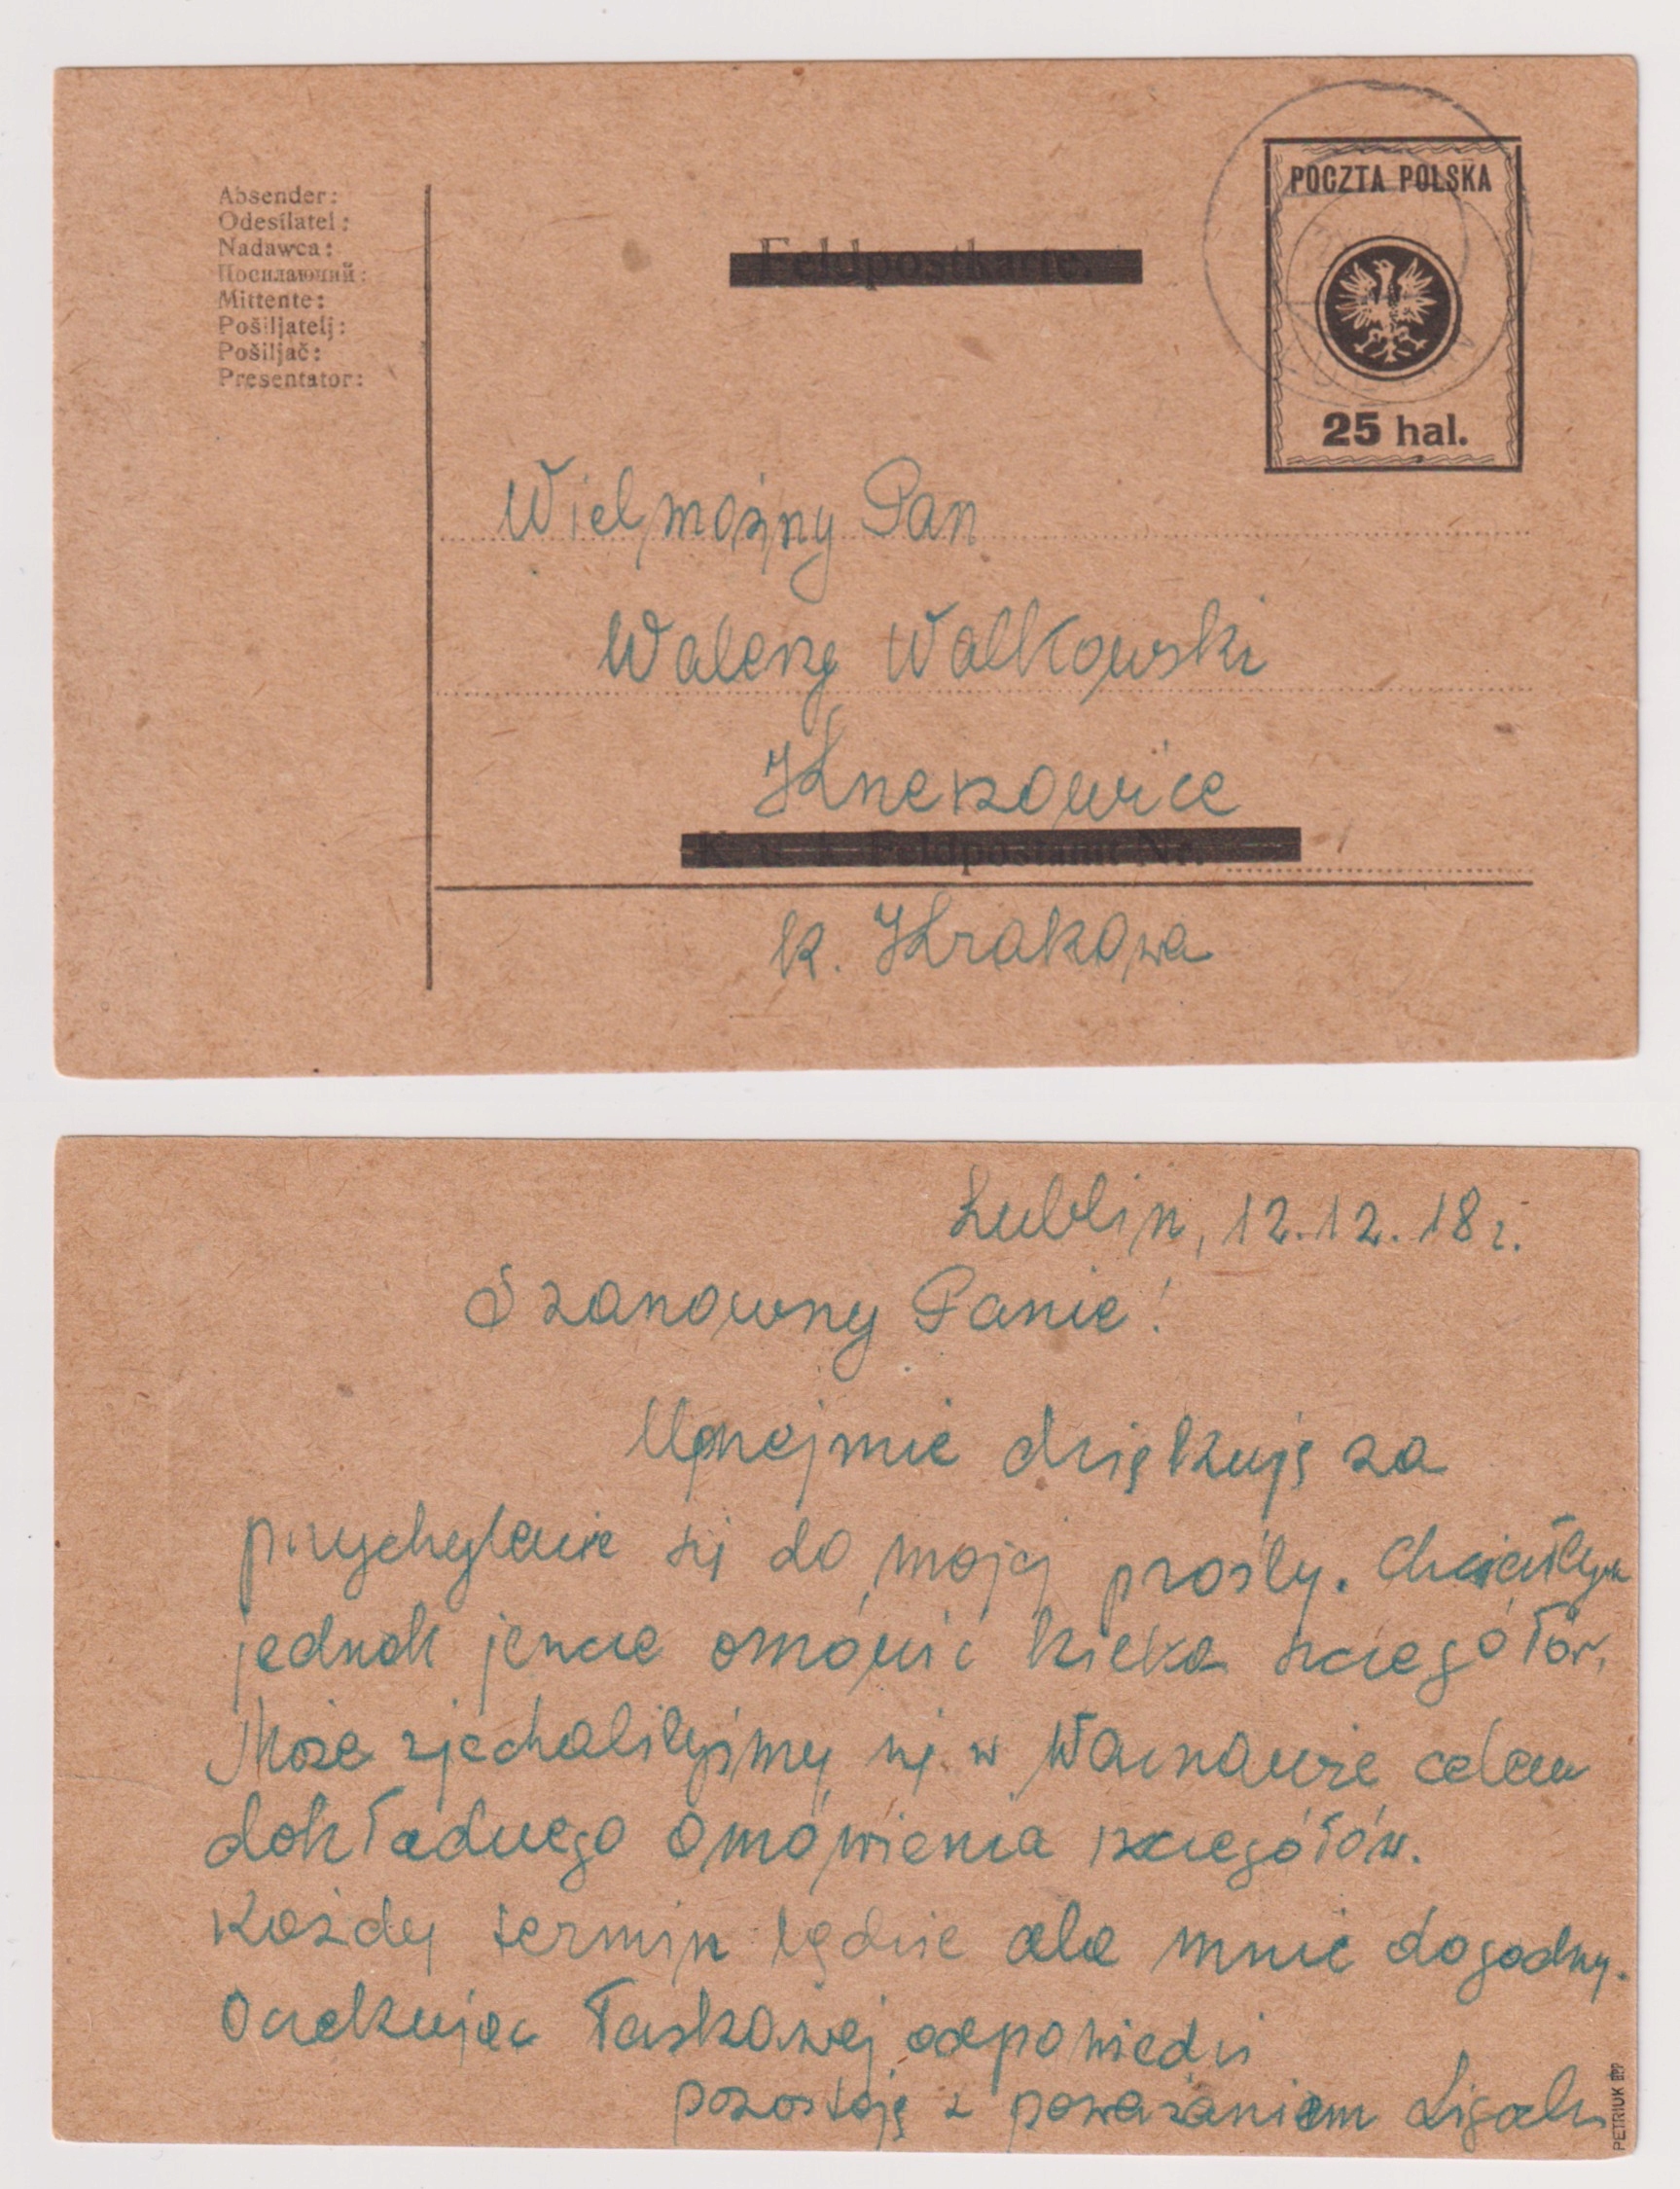 Absender:
Odesílatel:
Nadawca:
Посилаючий:
Mittente:
Pošiljatelj:
Pošiljač:
Presentator:
Feldpostkarte.
POCZTA POLSKA
25 hal.
Wielmożny Pan
Walery Walkowski
K. u. k. Feldpostamt Nr.
k. Krakowa
Lublin, 12.12.18 r.
Szanowny Panie!
Uprzejmie dziękuję za
przychylenie się do mojej prośby. Chciałbym
jednak jeszcze omówić kilka szczegółów.
Może zjechalibyśmy się w Warszawie celem
dokładnego omówienia szczegółów.
Każdy termin będzie dla mnie dogodny.
Oczekując łaskawej odpowiedzi
pozostaję z poważaniem
PETRIUK BPP